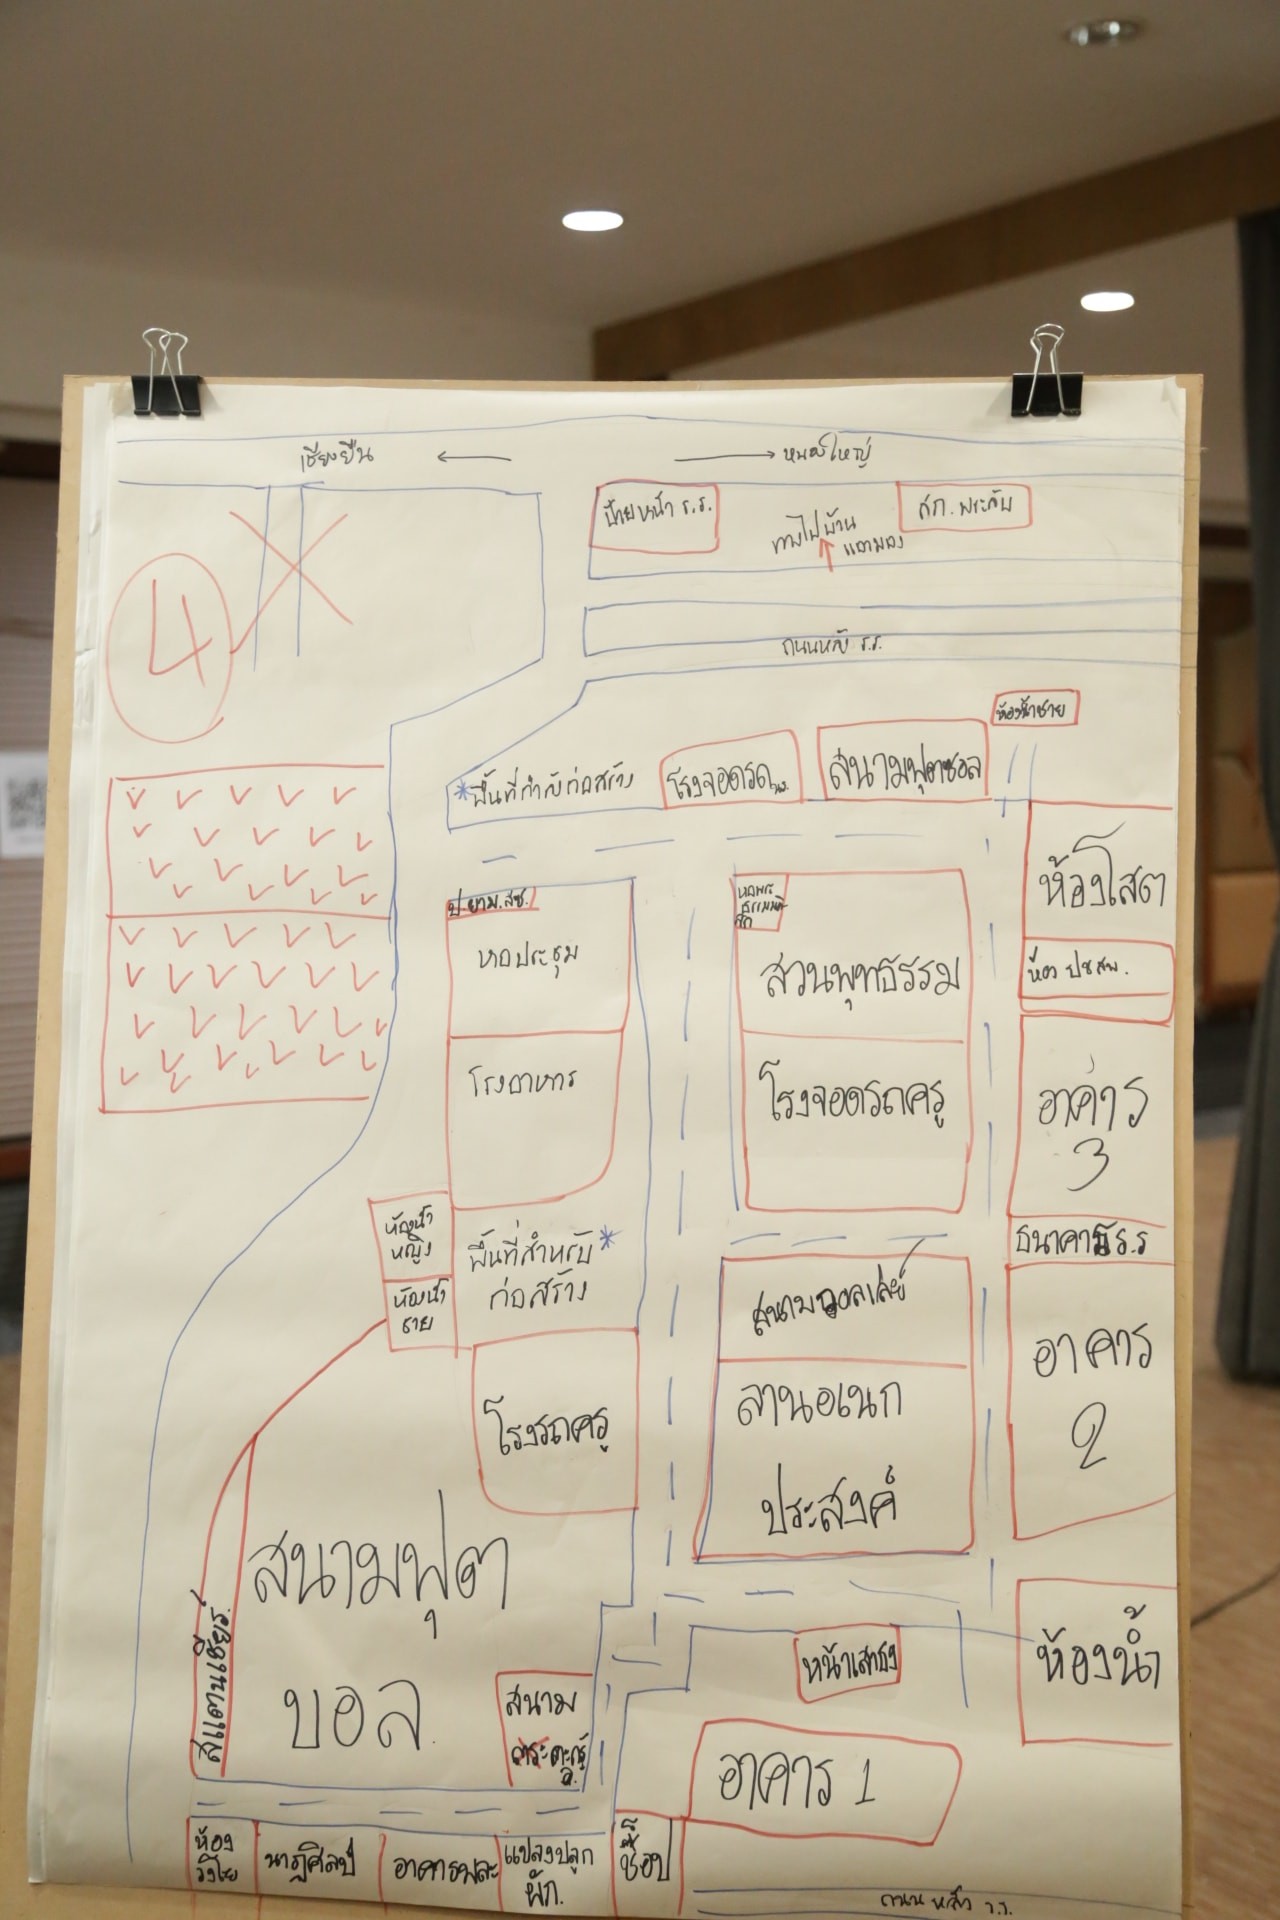 เชียงยืน
หนองใหญ่
ป้ายหน้า ร.ร.
ทางไปบ้าน
สภ. พระลับ
4
ถนนหลัง ร.ร.
ห้องน้ำชาย
*พื้นที่กำลังก่อสร้าง
โรงจอดรถ
สนามฟุตซอล
ห้องโสต
ป้อมยาม.สช.
หอประชุม
หอพระ
สวนพุทธธรรม
ห้อง ปชสพ.
โรงอาหาร
โรงจอดรถครู
อาคาร
3
ห้องน้ำ
หญิง
พื้นที่สำหรับ*
ก่อสร้าง
ธนาคาร ร.ร
ห้องน้ำ
ชาย
สนามวอลเล่ย์
อาคาร
2
โรงรถครู
ลานอเนก
ประสงค์
สนามฟุต
บอล
สแตนเชียร์
หน้าเสาธง
ห้องน้ำ
สนาม
อาคาร 1
ห้อง
นาฏศิลป์
อาคารพละ
แปลงปลูก
ผัก.
ช็อป
ถนน หลัง ร.ร.